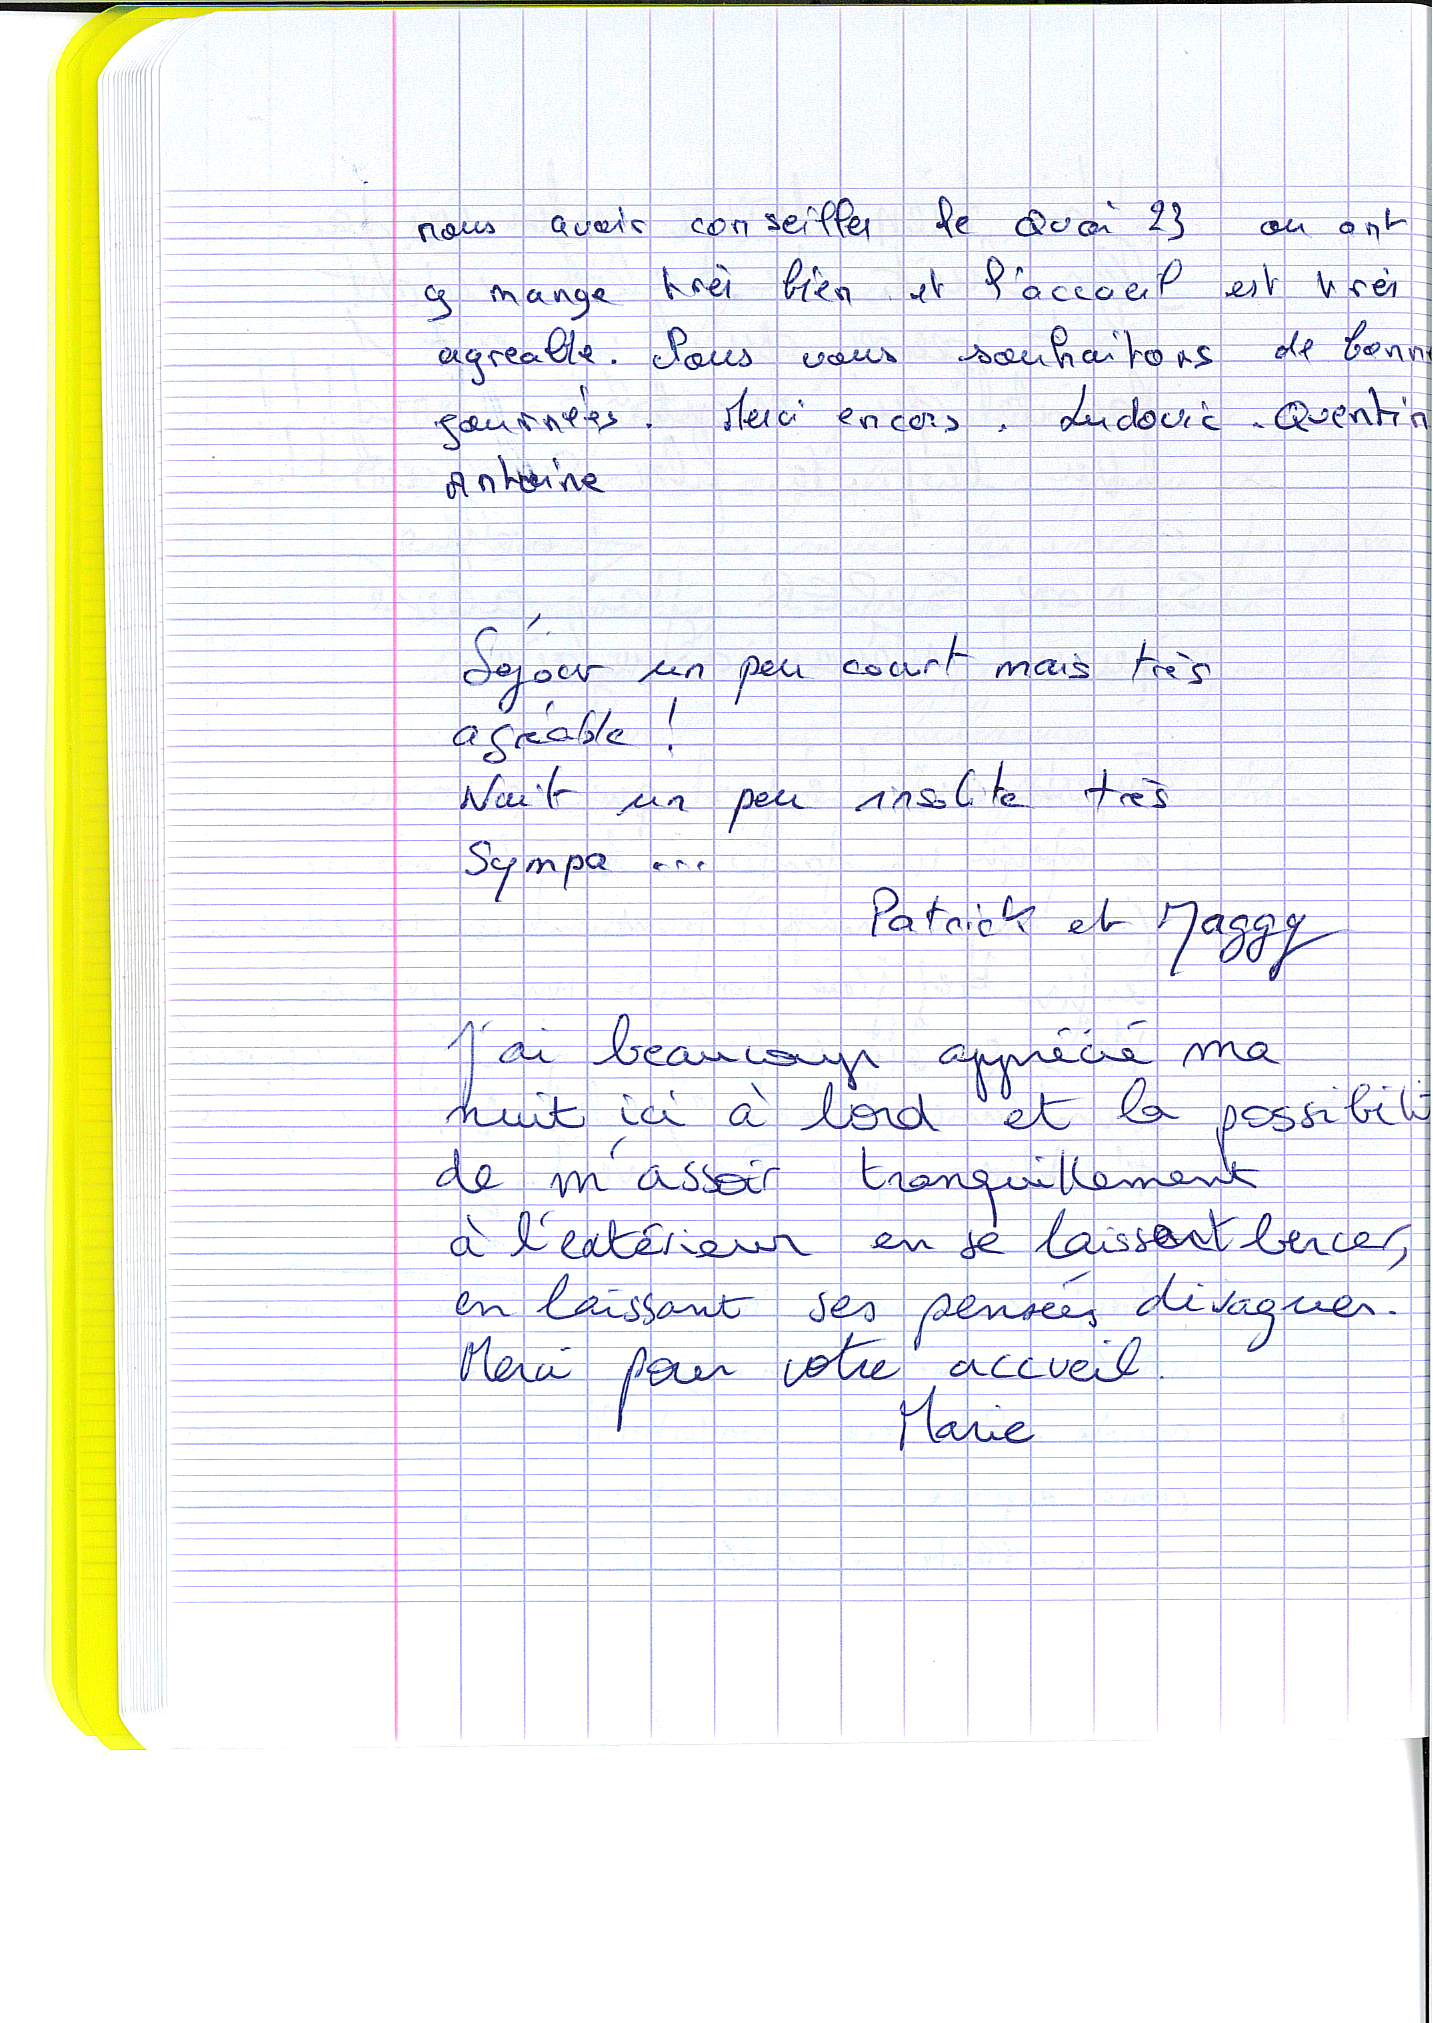 nous avoir conseiller le Quai 23 ou ont
y mange très bien et l'accoeil est très
agreable. Nous vous souhaitons de bonne
journées. Merci encors. Ludovic. Quentin
Antoine
Séjour un peu court mais très
agréable !
Nuit un peu insolite très
Sympa ...
Patrick et Maggy
J'ai beaucoup apprécié ma
nuit ici à bord et la possibili
de m'assoir tranquillement
à l'extérieur en se laissant bercer,
en laissant ses pensées divaguer.
Merci pour votre accueil.
Marie